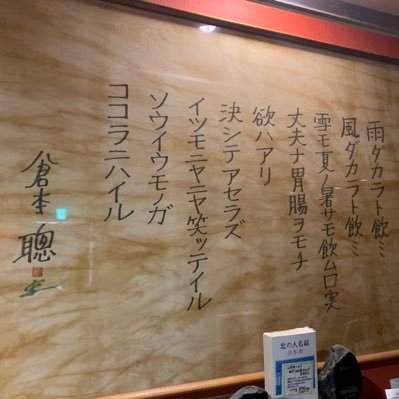 雨ダカラト飲ミ
風ダカラト飲ミ
雪モ夏ノ暑サモ飲ム口実
丈夫ナ胃腸ヲモチ
欲ハアリ
決シテアセラズ
イツモニヤニヤ笑ッテイル
ソウイウモノガ
ココラニハイル
倉本聰
北の人名録
倉本聰